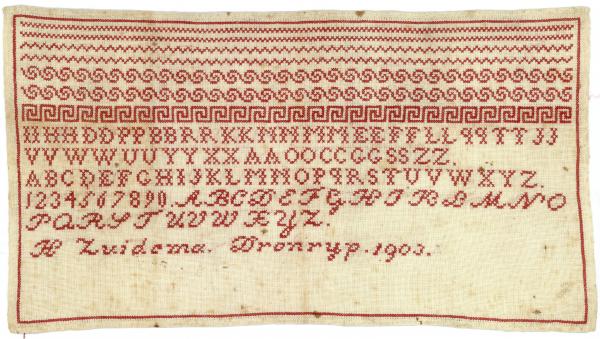 IIHHDDPPBBRRKKMMMMEEFFLLqqTTJJ
VVWWUUYYXXAAOOCCGGSSZZ.
ABCDEFGHIJKLMNOPQRSTUVWXYZ.
1234567890.ABCDEFGHIKLMNO
PQRSTUVWXYZ.
H Zuidema. Dronryp.1903.